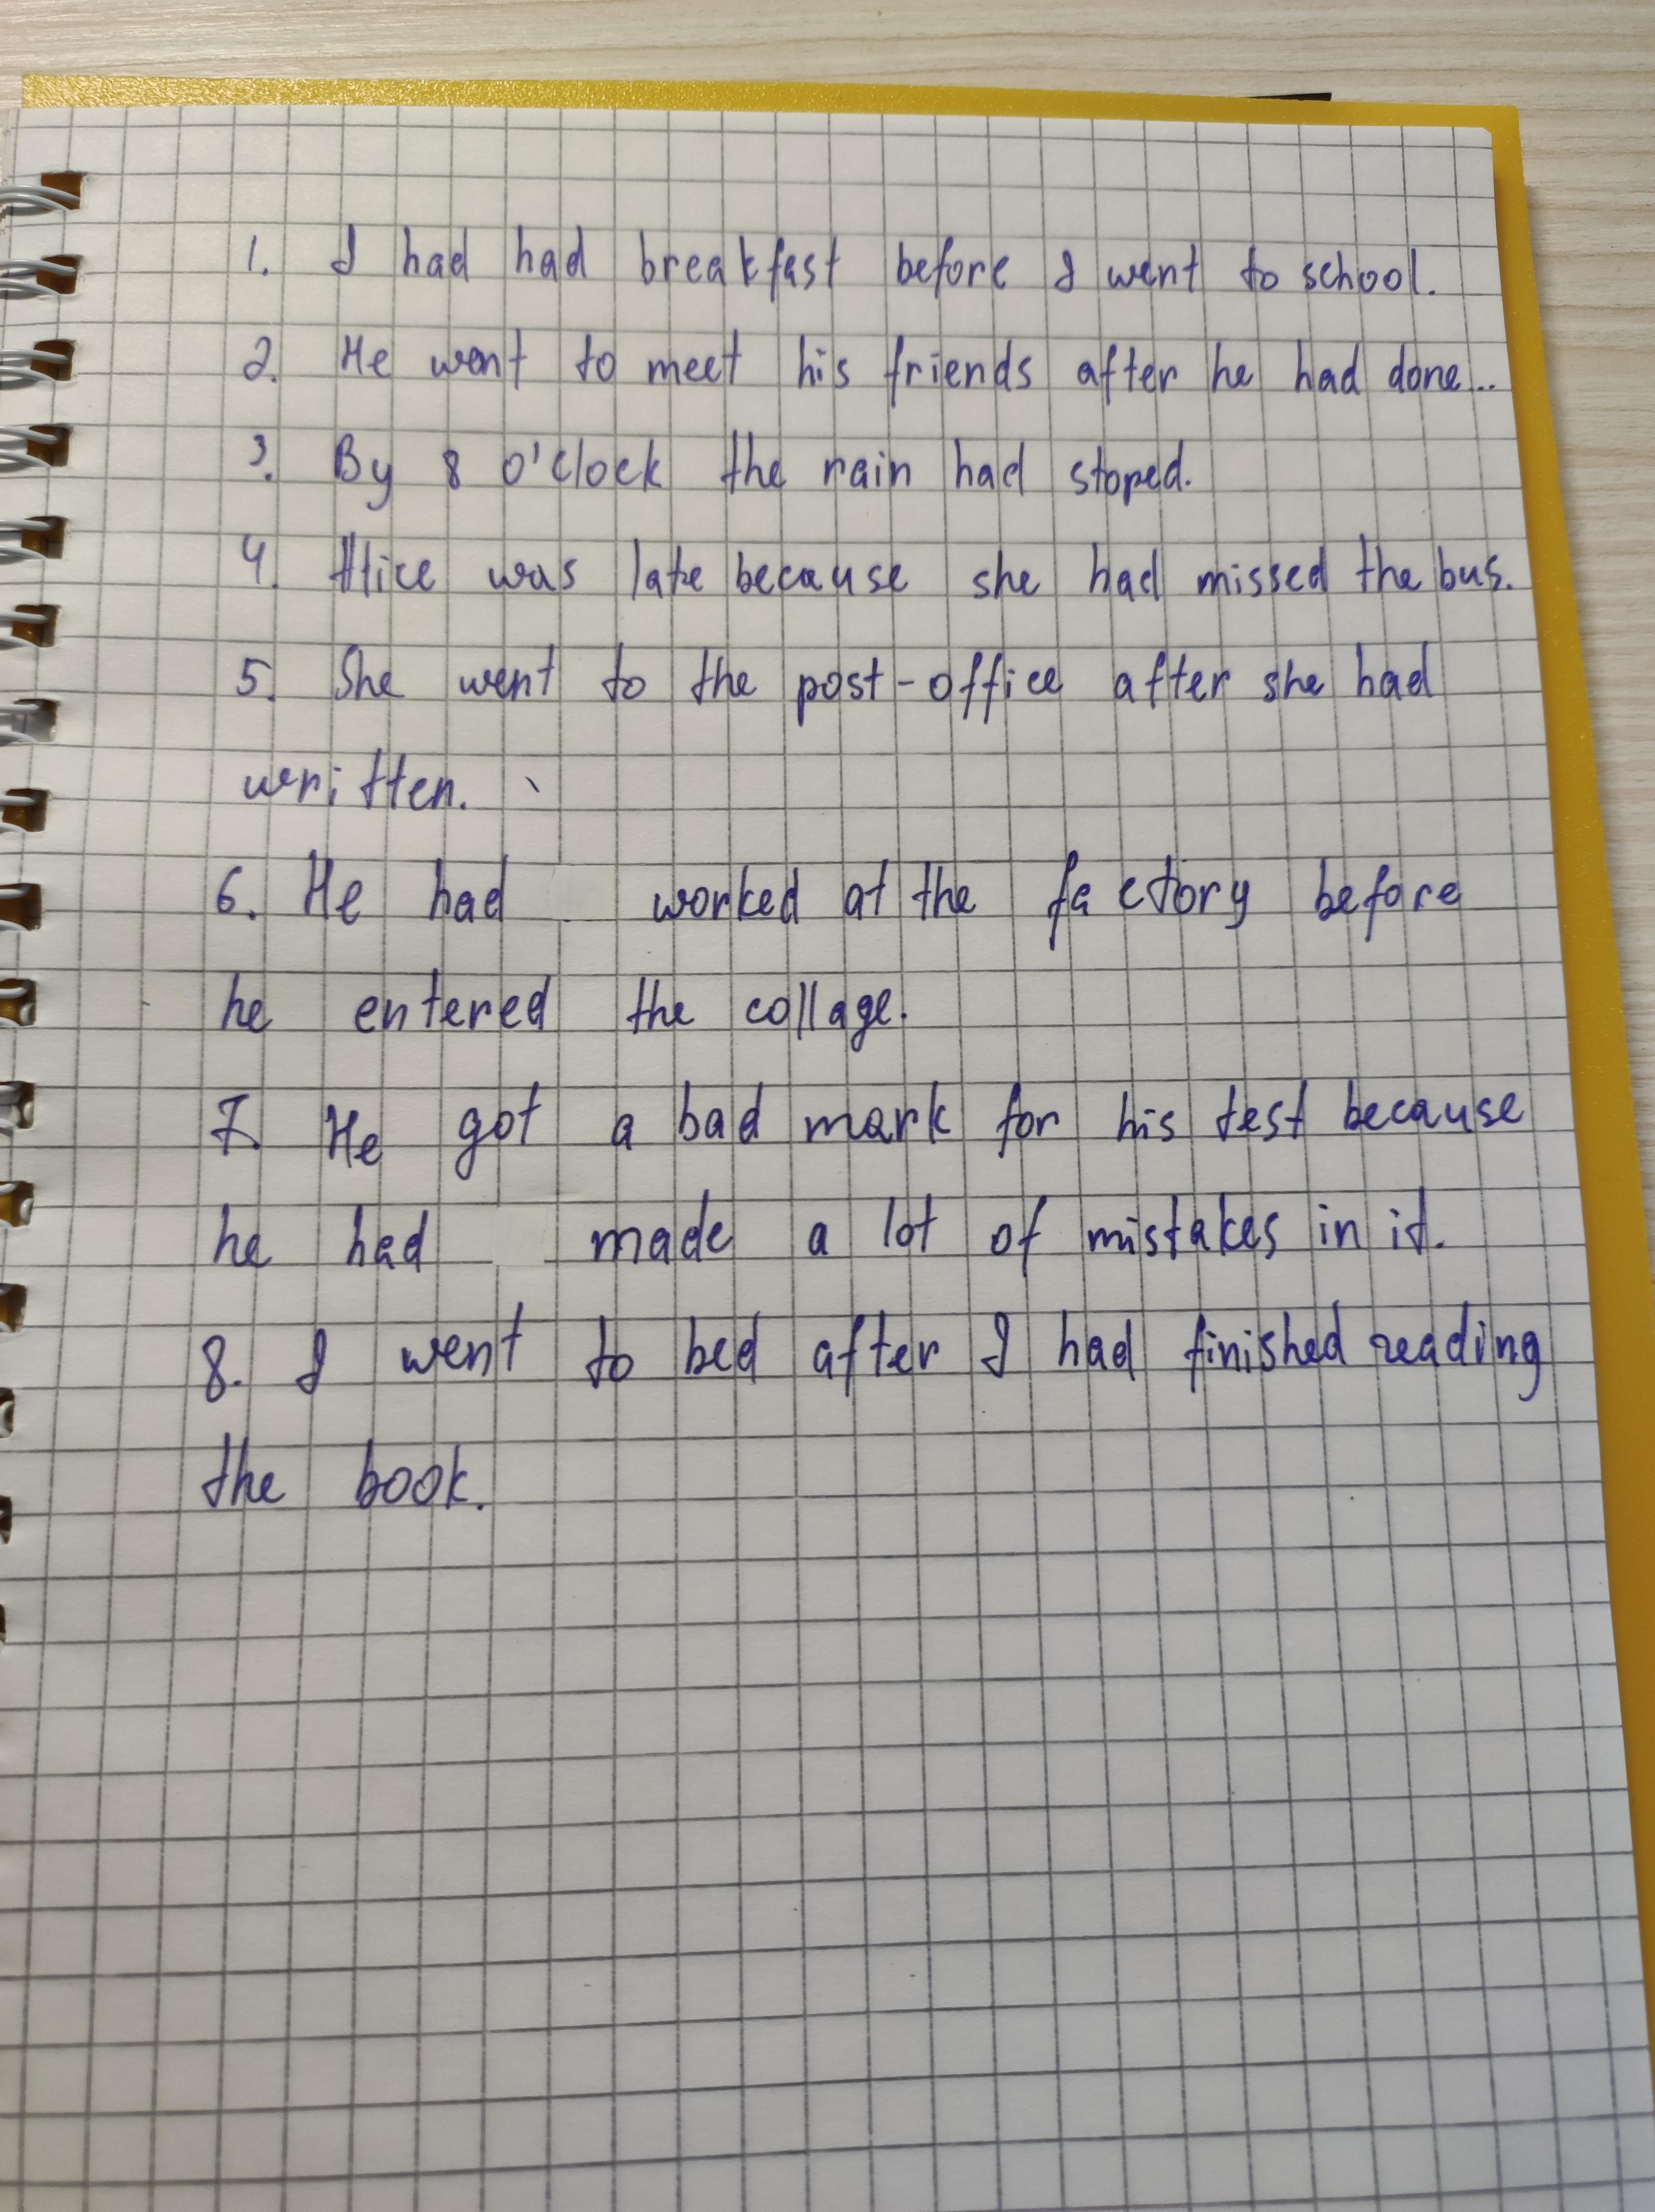 1. I had had breakfast before I went to school.
2. He went to meet his friends after he had done...
3. By 8 o'clock the rain had stoped.
4. Alice was late because she had missed the bus.
5. She went to the post-office after she had
written.
6. He had worked at the factory before
he entered the collage.
7. He got a bad mark for his test because
he had made a lot of mistakes in it.
8. I went to bed after I had finished reading
the book.